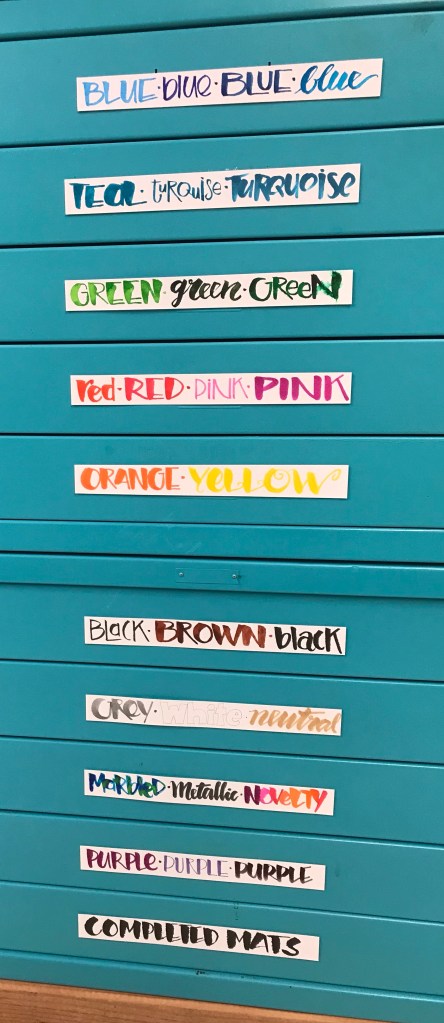 BLUE·blue·BLUE·blue
TEAL·turquise·TURQUOISE
GREEN·green·GREEN
red·RED·PINK·PINK
ORANGE·YELLOW
BLACK·BROWN·black
GREY·White·neutral
Marbled·Metallic·NOVELTY
PURPLE·PURPLE·PURPLE
COMPLETED MATS